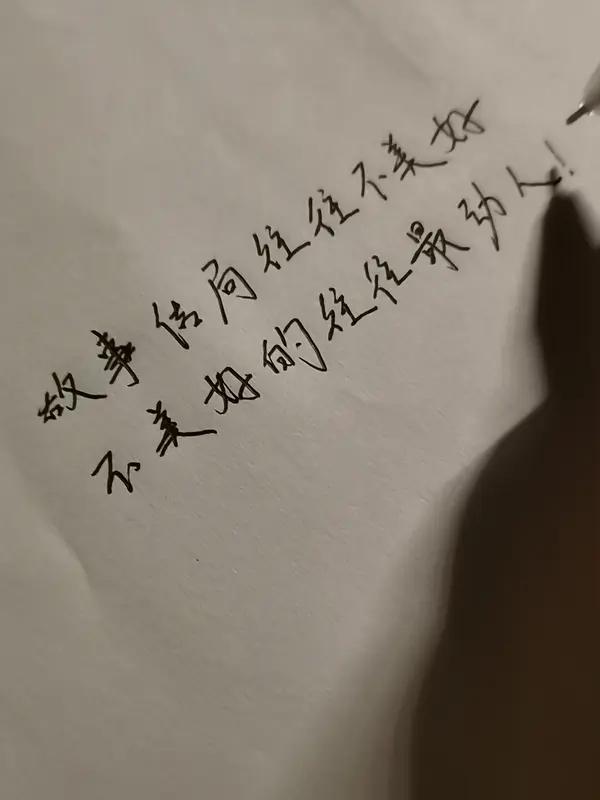 故事结局往往不美好
不美好的往往最动人!